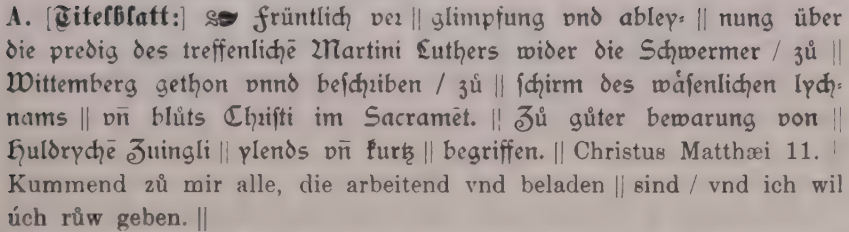 A. [Titelblatt:] ☙ Früntlich ver || glimpfung vnd abley⸗ || nung über
die predig des treffenlichē Martini Luthers wider die Schwermer / zů ||
Wittemberg gethon vnnd beschriben / zů || schirm des wåsenlichen lych⸗
nams || vn̄ blůts Christi im Sacramēt. || Zů gůter bewarung von ||
Huldrychē Zuingli || ylends vn̄ kurtz || begriffen. || Christus Matthæi 11. |
Kummend zů mir alle, die arbeitend vnd beladen || sind / vnd ich wil
úch růw geben. ||